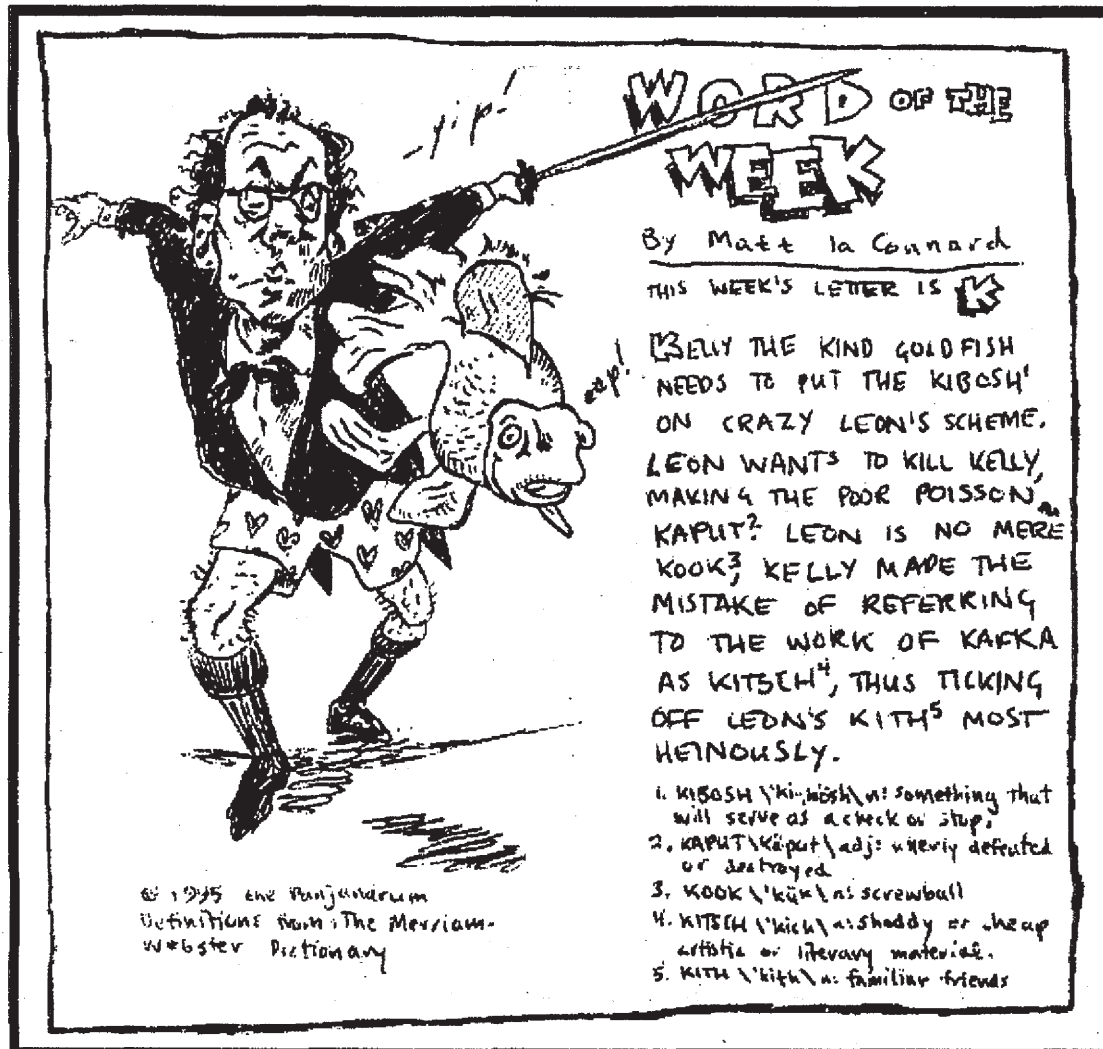 yip.
WORD OF THE
WEEK
By Matt la Connard
THIS WEEK'S LETTER IS K
KELLY THE KIND GOLDFISH
NEEDS TO PUT THE KIBOSH¹
ON CRAZY LEON'S SCHEME.
LEON WANTS TO KILL KELLY,
MAKING THE POOR POISSON
KAPUT². LEON IS NO MERE
KOOK³, KELLY MADE THE
MISTAKE OF REFERRING
TO THE WORK OF KAFKA
AS KITSCH⁴, THUS TICKING
OFF LEON'S KITH⁵ MOST
HEINOUSLY.
1. KIBOSH \'ki-,bösh\ n: something that
will serve as a check or stop.
2. KAPUT \käput\ adj: utterly defeated
or destroyed
3. KOOK \'kük\ n: screwball
4. KITSCH \'kich\ n: shoddy or cheap
artistic or literary material.
5. KITH \'kith\ n: familiar friends
© 1995 the Panjandrum
Definitions from: The Merriam-
Webster Dictionary